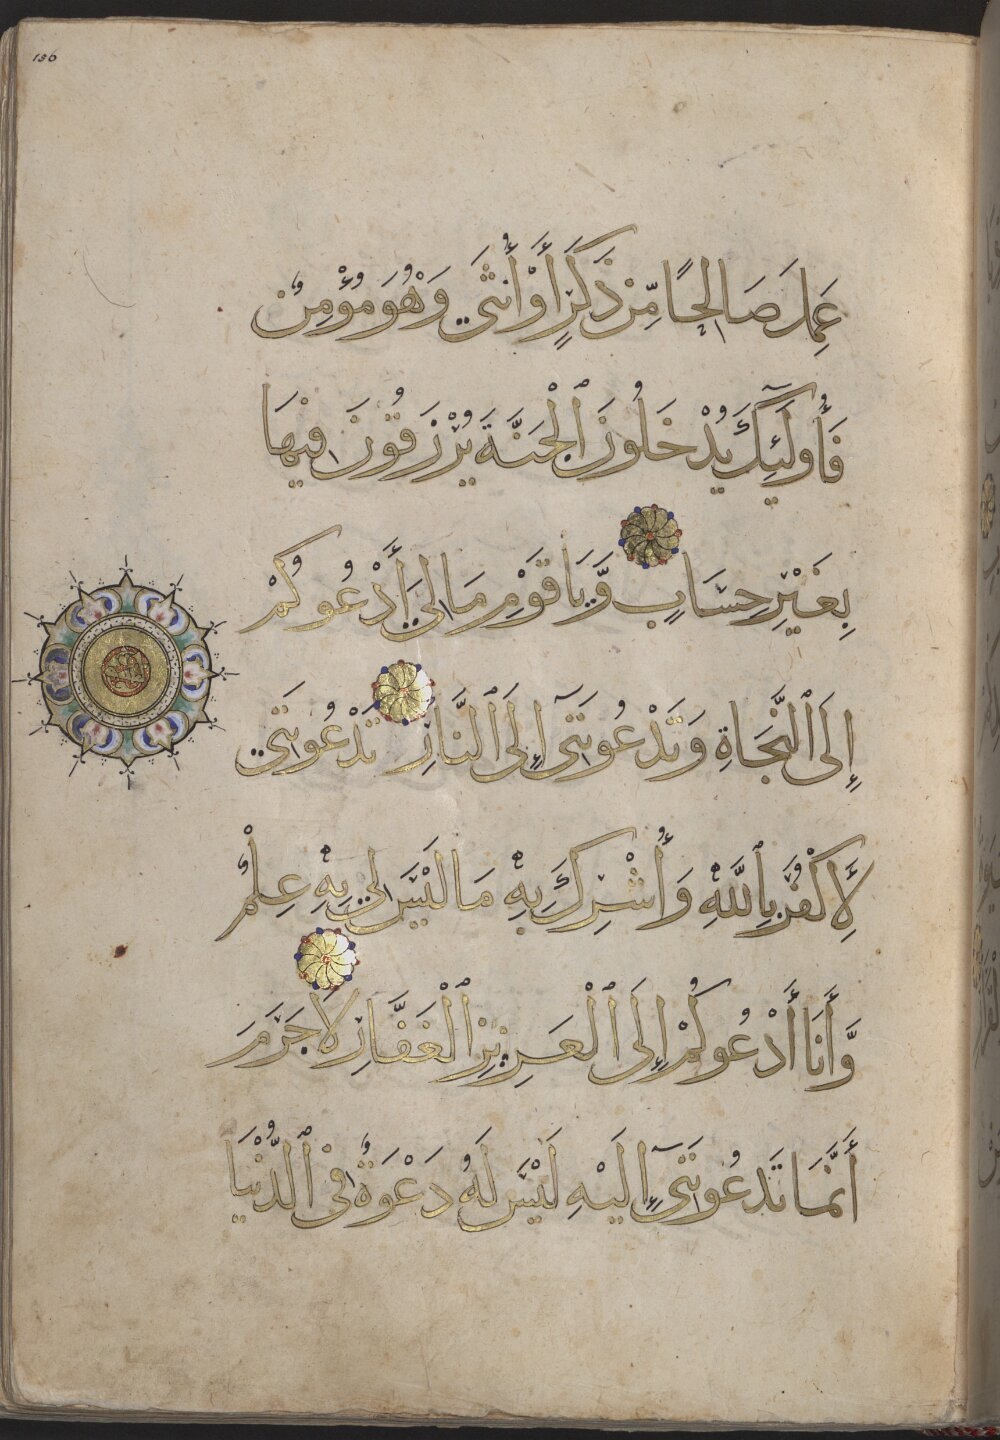 156
عَمِلَ صَالِحًا مِّن ذَكَرٍ أَوْ أُنثَىٰ وَهُوَ مُؤْمِنٌ
فَأُولَٰئِكَ يُدْخَلُونَ ٱلْجَنَّةَ يُرْزَقُونَ فِيهَا
بِغَيْرِ حِسَابٍ وَّيَا قَوْمِ مَا لِي أَدْعُوكُمْ
إِلَى ٱلنَّجَاةِ وَتَدْعُونَنِي إِلَى ٱلنَّارِ تَدْعُونَنِي
لِأَكْفُرَ بِٱللَّهِ وَأُشْرِكَ بِهِ مَا لَيْسَ لِي بِهِ عِلْمٌ
وَّأَنَا أَدْعُوكُمْ إِلَى ٱلْعَزِيزِ ٱلْغَفَّارِ لَا جَرَمَ
أَنَّمَا تَدْعُونَنِي إِلَيْهِ لَيْسَ لَهُ دَعْوَةٌ فِي ٱلدُّنْيَا